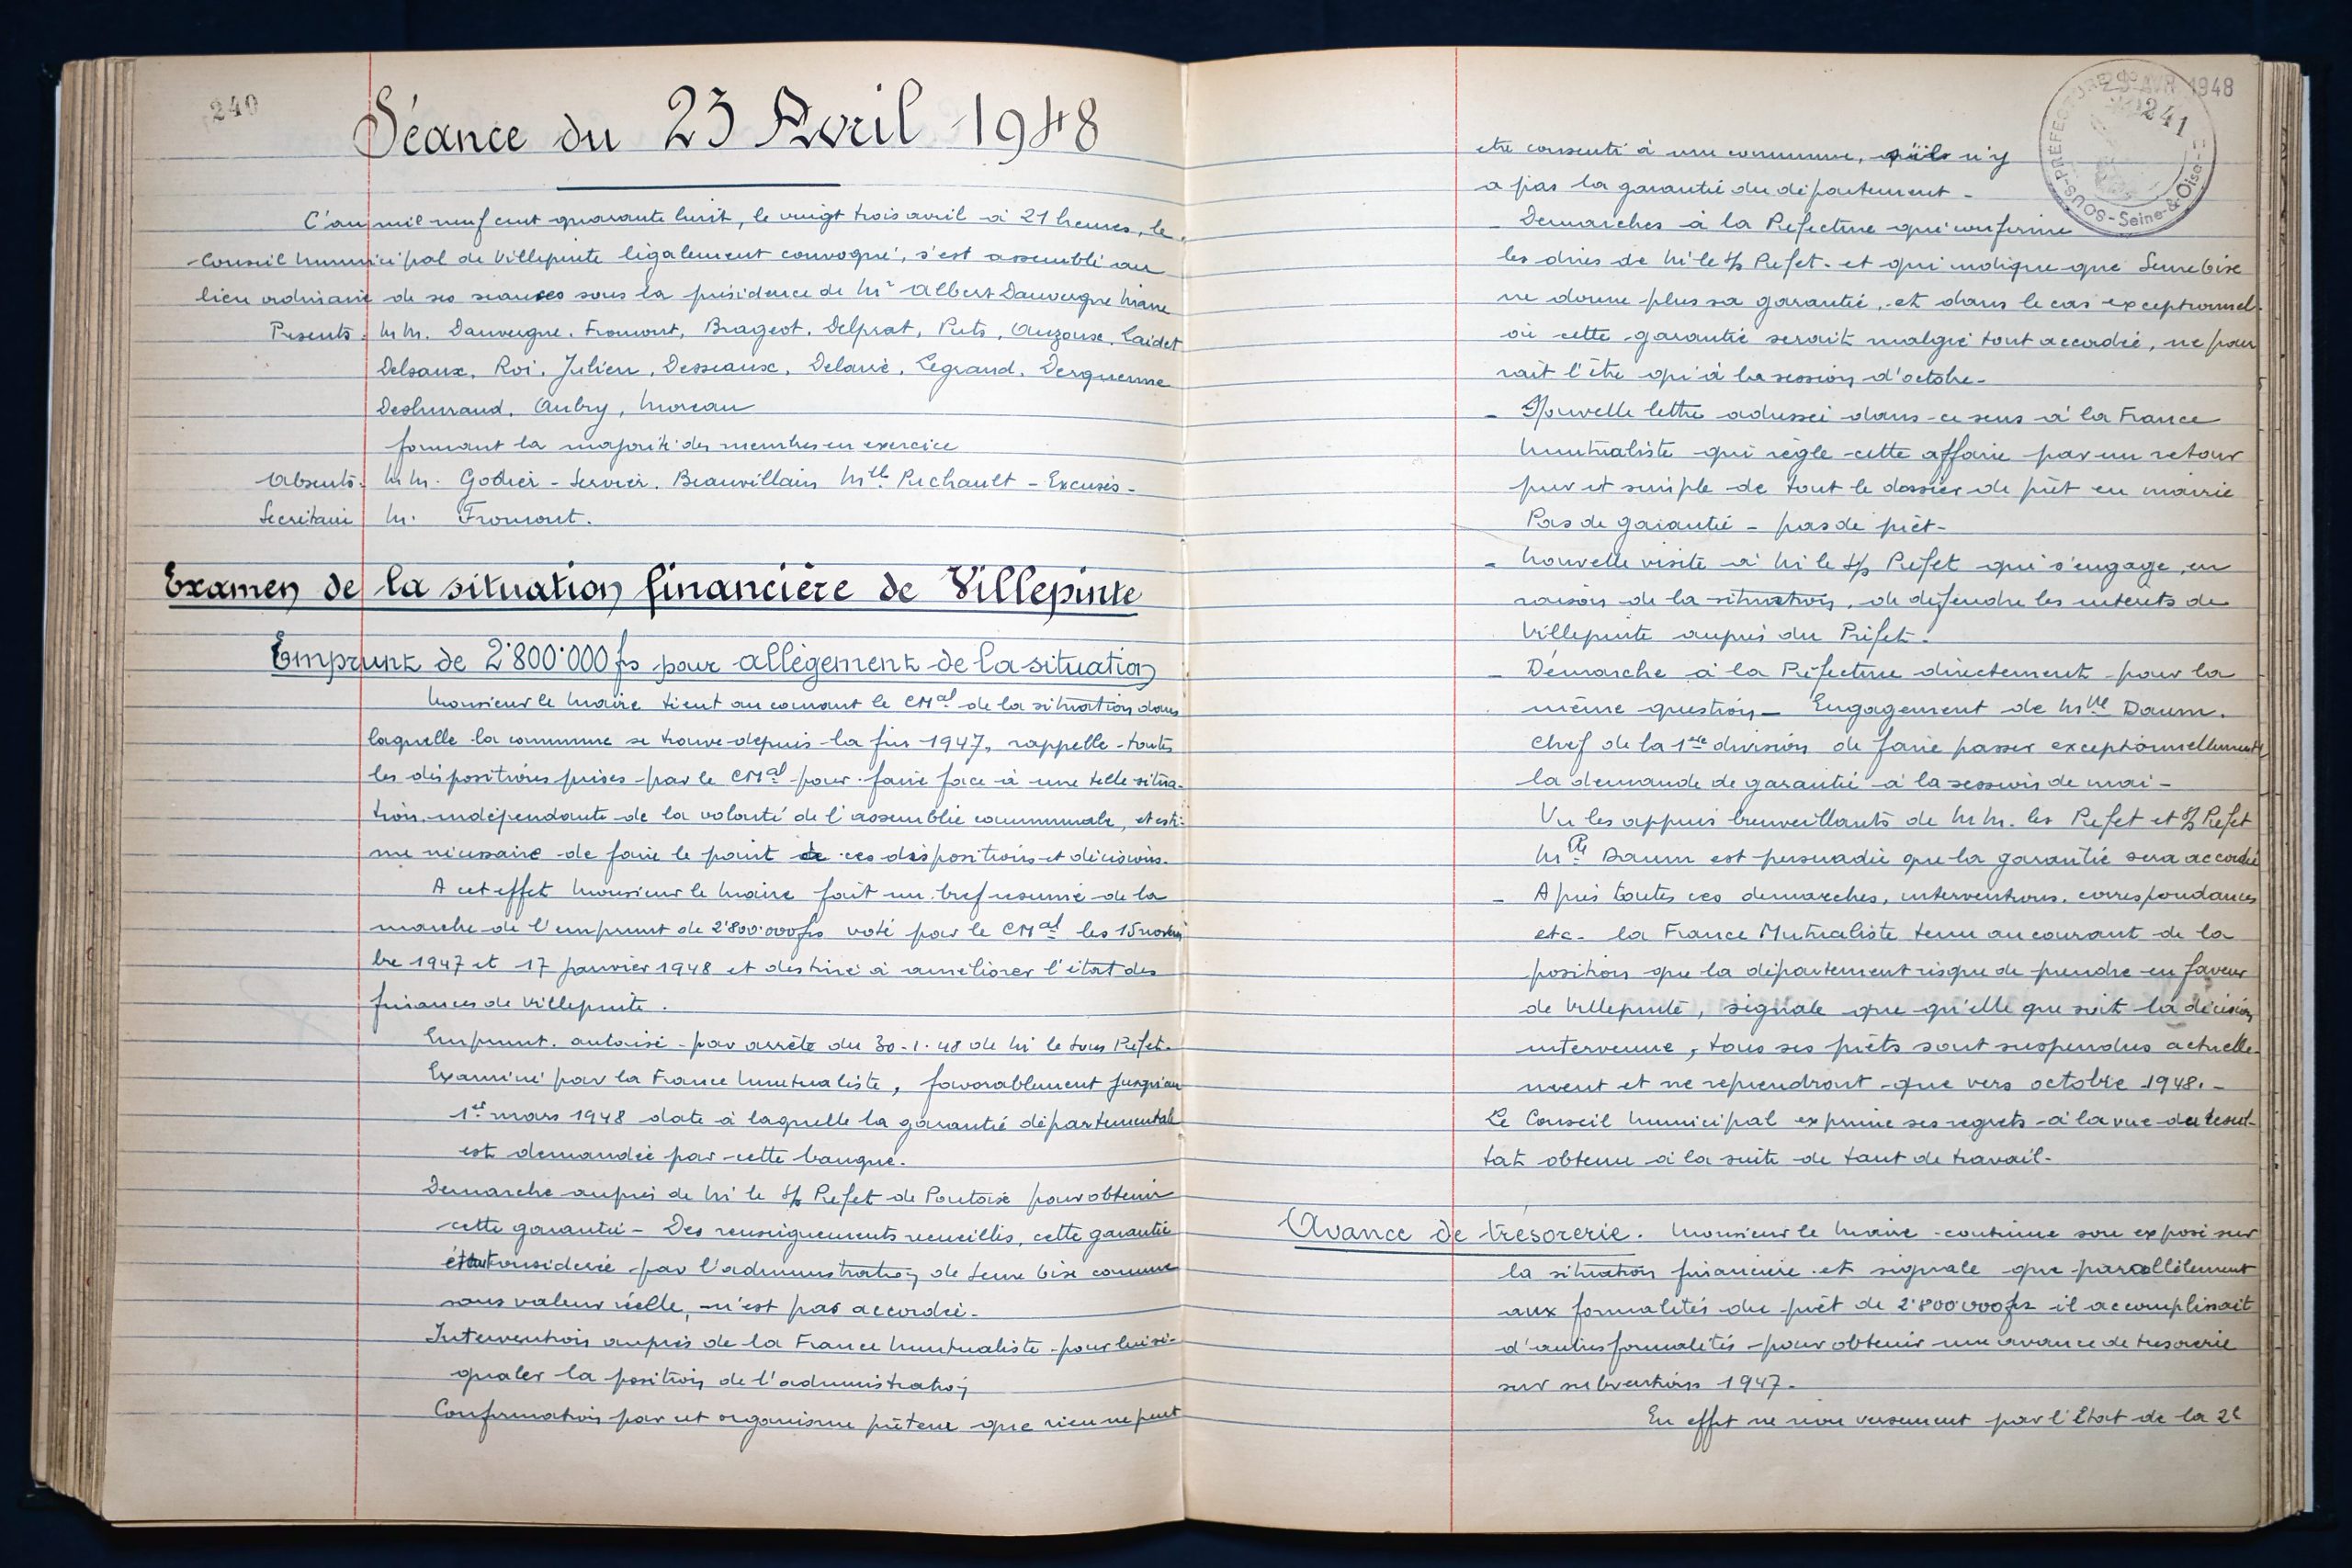 240
Séance du 23 Avril 1948
L'an mil neuf cent quarante huit, le vingt trois avril à 21 heures, le
Conseil Municipal de Villepinte légalement convoqué, s'est assemblé au
lieu ordinaire de ses séances sous la présidence de Mr Albert Dauvergne Maire
Présents. MM. Dauvergne. Fromont, Brageot. Delprat, Puts, Auzoux, Caidet
Delsaux. Roi. Julien. Desseaux. Delavié. Legrand. Derquenne
Aubry, Moreau
formant la majorité des membres en exercice
Absents. MM. Godier - Servier. Beauvillain Mlle Pichault - Excusés -
Secrétaire M. Fromont.
Examen de la situation financière de Villepinte
Emprunt de 2.800.000 fs pour allègement de la situation
Monsieur le Maire tient au courant le CMal de la situation dans
laquelle la commune se trouve depuis la fin 1947, rappelle toutes
les dispositions prises par le CMal pour faire face à une telle situa-
tion indépendante de la volonté de l'assemblée communale, et esti-
me nécessaire de faire le point de ces dispositions et décisions.
A cet effet Monsieur le Maire fait un bref résumé de la
marche de l'emprunt de 2.800.000 fs voté par le CMal les 15 novem
bre 1947 et 17 janvier 1948 et destiné à améliorer l'état des
finances de Villepinte.
Emprunt. autorisé par arrêté du 30-1-48 de M le Sous Préfet.
Examiné par la France Mutualiste, favorablement jusqu'au
1er mars 1948 date à laquelle la garantie départementale
est demandée par cette banque.
Démarche auprès de M le S/s Préfet de Pontoise pour obtenir
cette garantie - Des renseignements recueillis, cette garantie
étant considérée par l'administration de Seine & Oise comme
sans valeur réelle, n'est pas accordée.
Intervention auprès de la France Mutualiste pour lui si-
gnaler la position de l'administration
Confirmation par cet organisme prêteur que rien ne peut
SOUS-PRÉFECTURE
Seine-&-Oise
AVR 1948
241
etre consenti à une commune, s'il n'y
a pas la garantie du département -
- Démarches à la Préfecture qui confirme
les dires de M le S/s Préfet. et qui indique que Seine & Oise
ne donne plus sa garantie, et dans le cas exceptionnel
où cette garantie serait malgré tout accordée, ne pour
rait l'être qu'à la session d'octobre -
- Nouvelle lettre adressée dans ce sens à la France
Mutualiste qui règle cette affaire par un retour
pur et simple de tout le dossier de prêt en mairie
Pas de garantie - pas de prêt -
- Nouvelle visite à M le S/s Préfet qui s'engage, en
raison de la situation, de défendre les intérêts de
Villepinte auprès du Préfet.
- Démarche à la Préfecture directement pour la
même question - Engagement de Mlle Daum.
Chef de la 1ère division de faire passer exceptionnellement
la demande de garantie à la session de mai -
Vu les appuis bienveillants de MM. les Préfet et S/s Préfet
Mlle Daum est persuadée que la garantie sera accordée
- Après toutes ces démarches, interventions, correspondances
etc. la France Mutualiste tenu au courant de la
position que la département risque de prendre en faveur
de Villepinte, signale que qu'elle que soit la décision
intervenue, tous ses prêts sont suspendus actuelle-
ment et ne reprendront que vers octobre 1948. -
Le Conseil Municipal exprime ses regrets à la vue du résul-
tat obtenu à la suite de tant de travail -
Avance de trésorerie. Monsieur le Maire continue son exposé sur
la situation financière et signale que parallèlement
aux formalités du prêt de 2.800.000 fs il accomplissait
d'autres formalités pour obtenir une avance de trésorerie
sur subventions 1947 -
En effet versement par l'Etat de la 2e